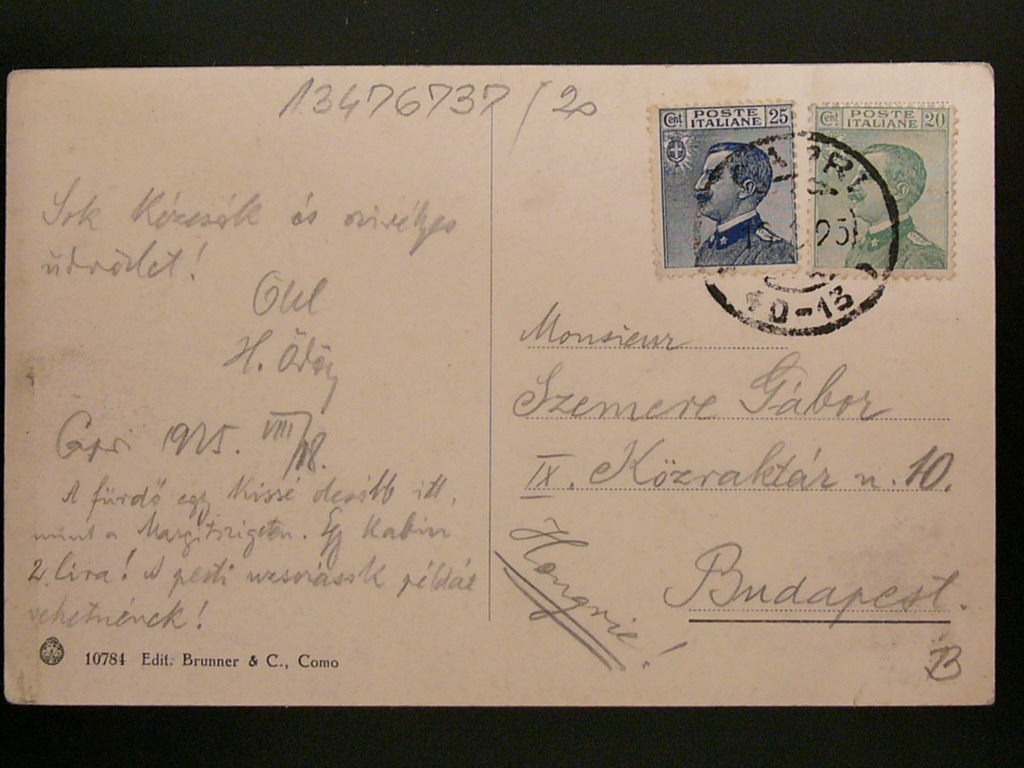 13476737/20
Sok kézcsók és szivélyes
üdvözlet!
H. Ödön
Capri 1925. VIII/18.
A fürdő egy kissé olcsóbb itt,
mint a Margitszigeten. Egy kabin
2 lira! A pesti uzsorások példát
vehetnének!
10784 Edit. Brunner & C., Como
Cent POSTE ITALIANE 25
Cent POSTE ITALIANE 20
CAPRI
10-13
Monsieur
Szemere Gábor
IX. Közraktár u. 10.
Budapest.
Hongrie!
B